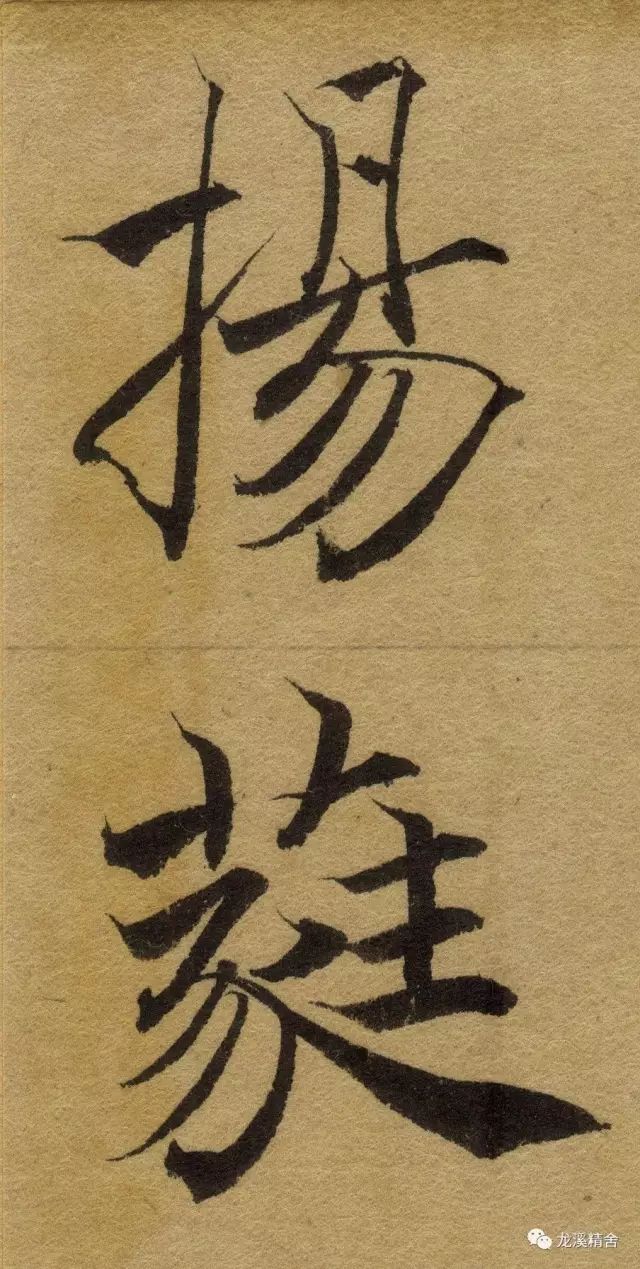 揚
蕤
龙溪精舍